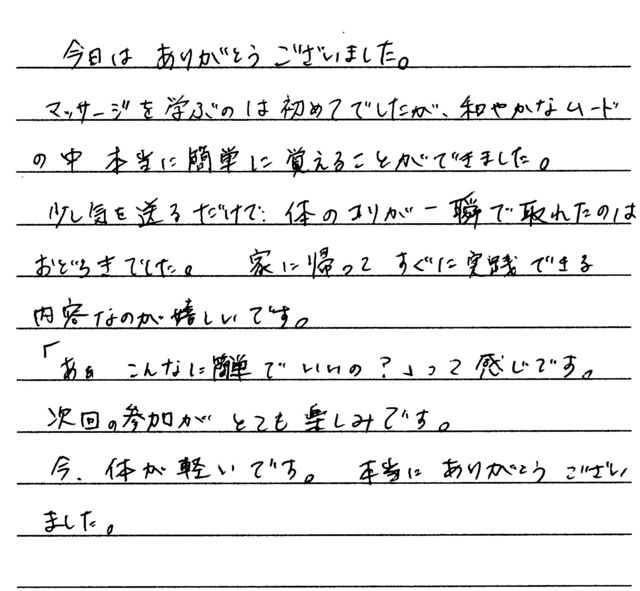 今日は ありがとうございました。
マッサージを学ぶのは初めてでしたが、和やかなムード
の中 本当に簡単に覚えることができました。
少し気を送るだけで、体のコリが一瞬で取れたのは
おどろきでした。 家に帰って すぐに実践できる
内容なのが嬉しいです。
「あぁ こんなに簡単でいいの?」って感じです。
次回の参加が とても楽しみです。
今、体が軽いです。 本当に ありがとうござい
ました。